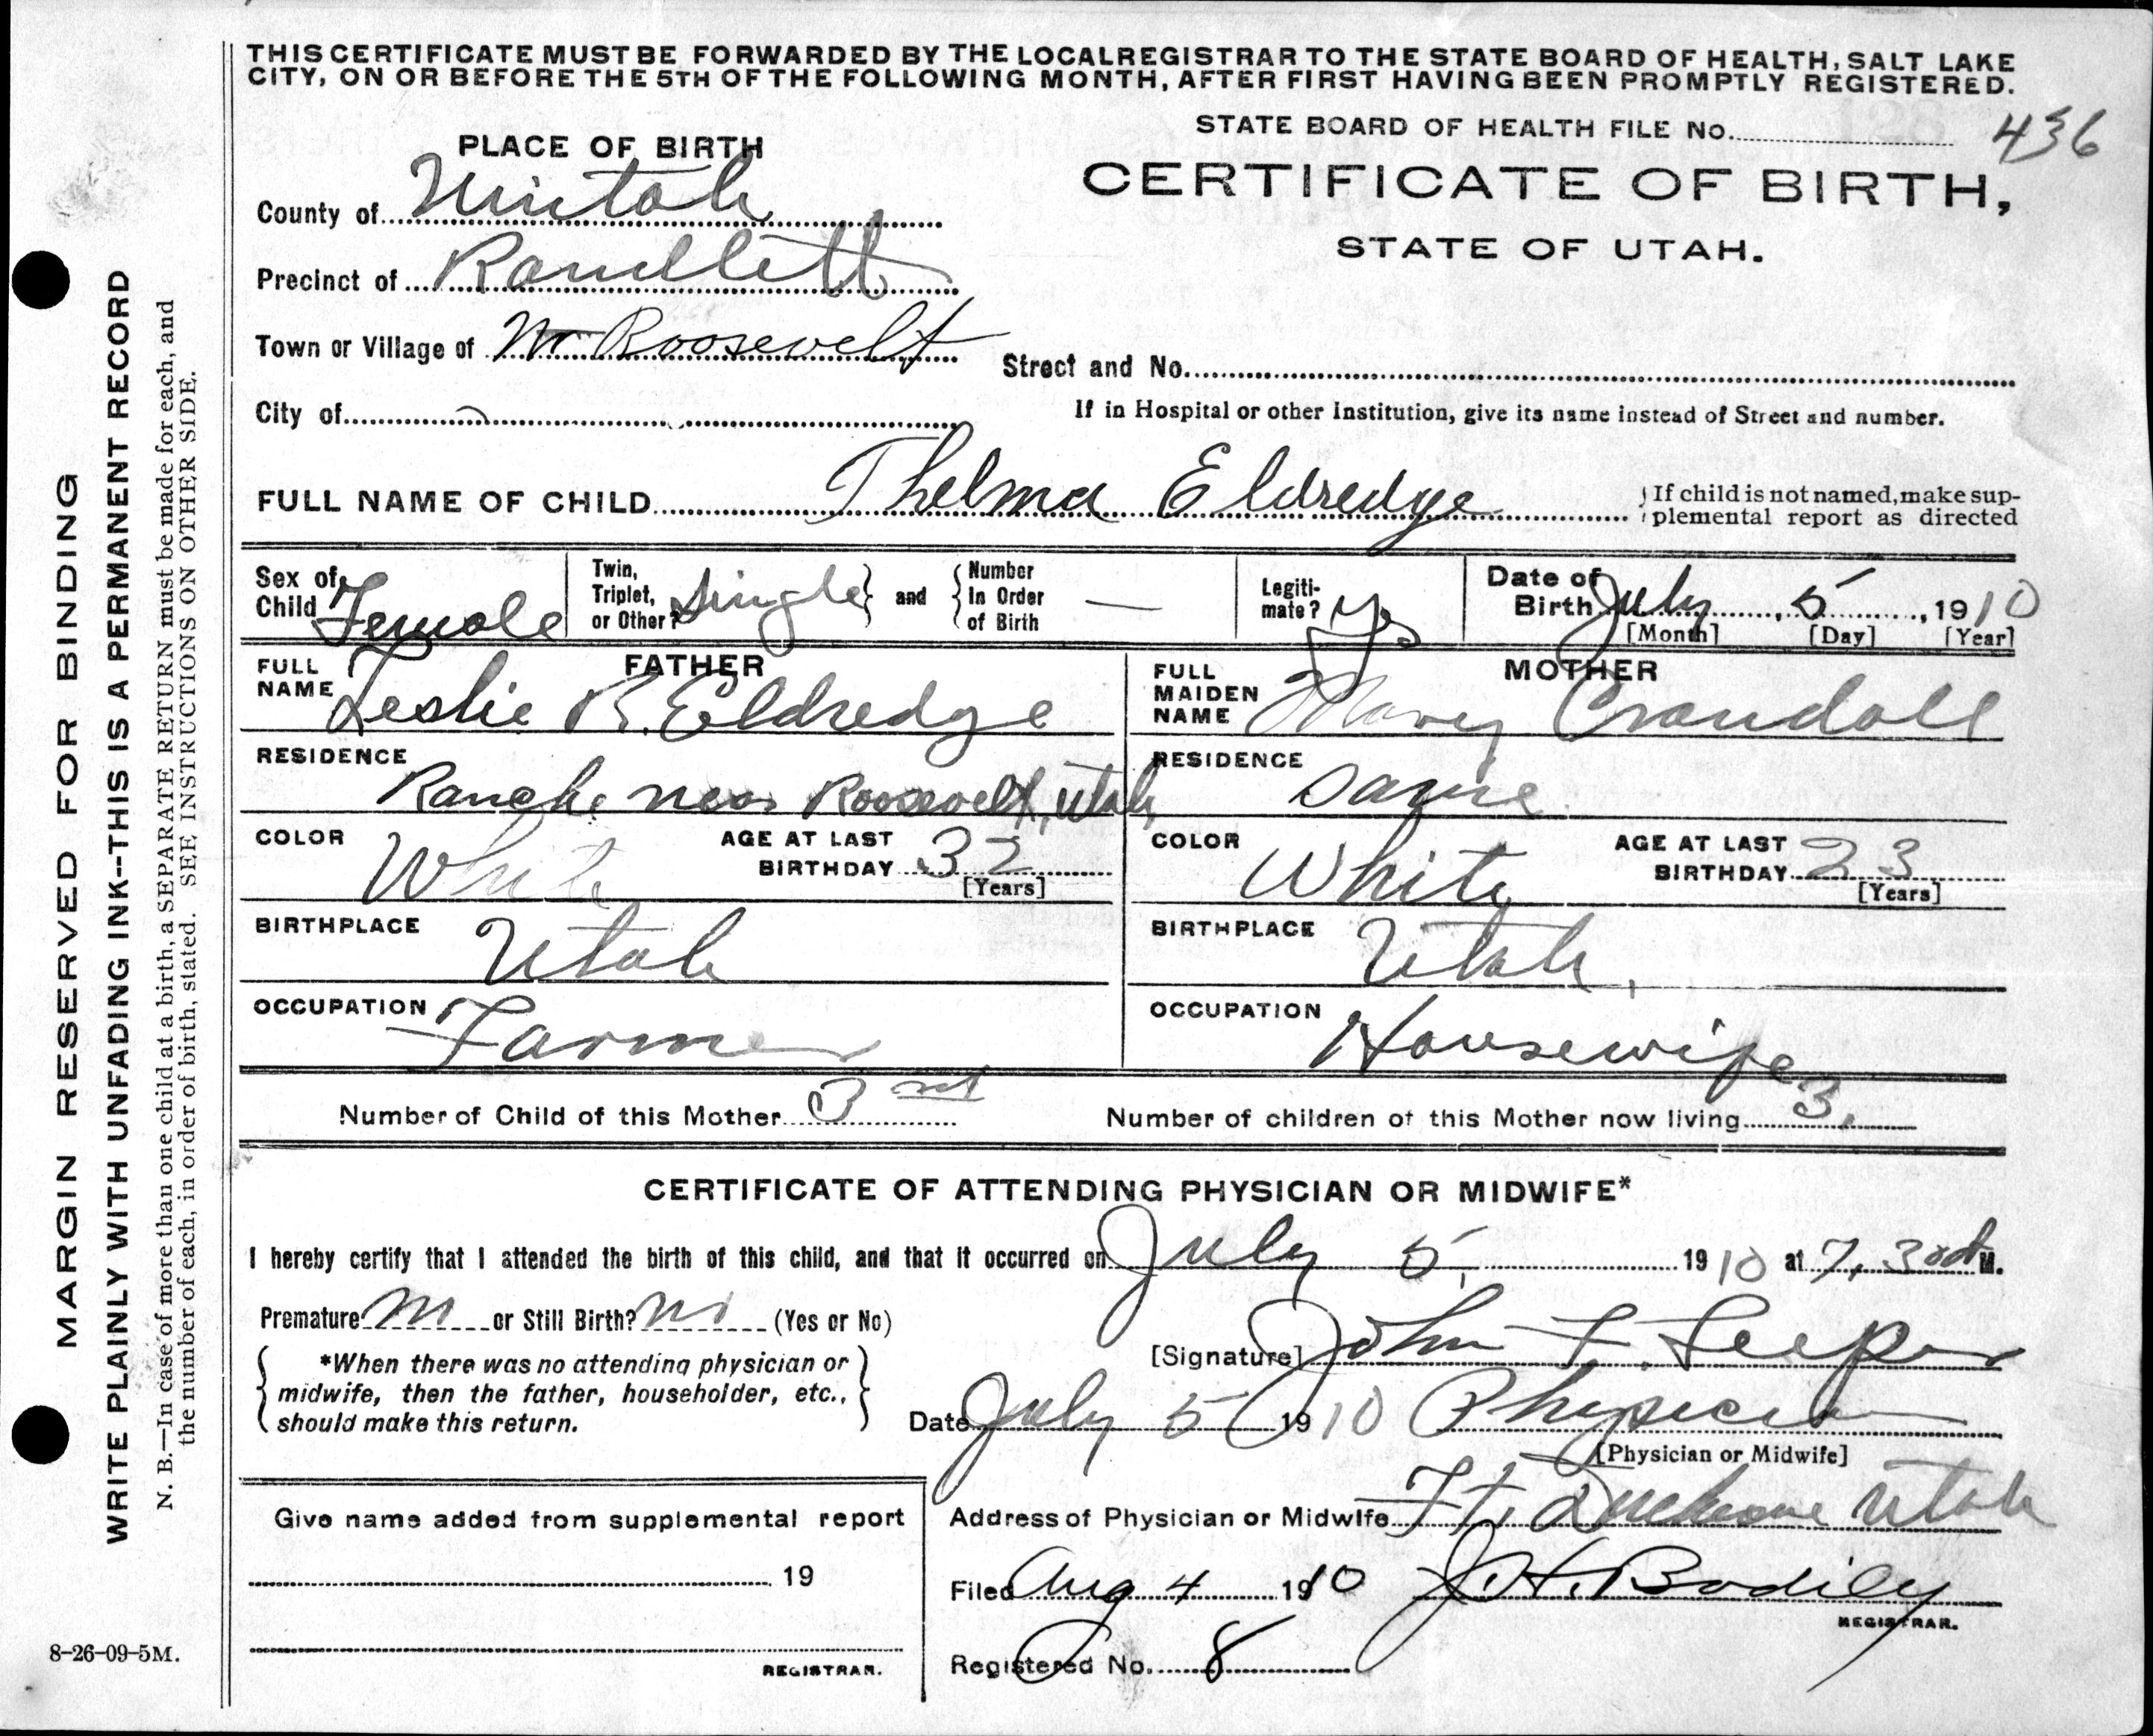 THIS CERTIFICATE MUST BE FORWARDED BY THE LOCAL REGISTRAR TO THE STATE BOARD OF HEALTH, SALT LAKE
CITY, ON OR BEFORE THE 5TH OF THE FOLLOWING MONTH, AFTER FIRST HAVING BEEN PROMPTLY REGISTERED.
STATE BOARD OF HEALTH FILE No. 436
PLACE OF BIRTH
CERTIFICATE OF BIRTH,
STATE OF UTAH.
County of Uintah
Precinct of Randlett
Town or Village of Roosevelt
Street and No.
City of
If in Hospital or other Institution, give its name instead of Street and number.
FULL NAME OF CHILD Thelma Eldredge
If child is not named, make sup-
plemental report as directed
Sex of Child Female
Twin, Triplet, or Other? Single and Number In Order of Birth —
Legiti-mate? Yes
Date of Birth July 5, 1910
[Month] [Day] [Year]
FATHER
FULL NAME Leslie R. Eldredge
MOTHER
FULL MAIDEN NAME Mary Crandall
RESIDENCE Ranch near Roosevelt, Utah,
RESIDENCE Same
COLOR White AGE AT LAST BIRTHDAY 32 [Years]
COLOR White AGE AT LAST BIRTHDAY 23 [Years]
BIRTHPLACE Utah
BIRTHPLACE Utah,
OCCUPATION Farmer
OCCUPATION Housewife
Number of Child of this Mother 3
Number of children of this Mother now living 3.
CERTIFICATE OF ATTENDING PHYSICIAN OR MIDWIFE*
I hereby certify that I attended the birth of this child, and that it occurred on July 5, 1910 at 7,30 M.
Premature no or Still Birth? no (Yes or No)
[Signature] John F. Leeper
*When there was no attending physician or
midwife, then the father, householder, etc.,
should make this return.
Date July 5 1910 Physician
[Physician or Midwife]
Give name added from supplemental report
Address of Physician or Midwife Ft. Duchesne Utah
19
Filed Aug 4 1910 J. H. Bodily
REGISTRAR.
Registered No. 8
REGISTRAR.
8-26-09-5M.
MARGIN RESERVED FOR BINDING
WRITE PLAINLY WITH UNFADING INK--THIS IS A PERMANENT RECORD
N. B.—In case of more than one child at a birth, a SEPARATE RETURN must be made for each, and
the number of each, in order of birth, stated. SEE INSTRUCTIONS ON OTHER SIDE.